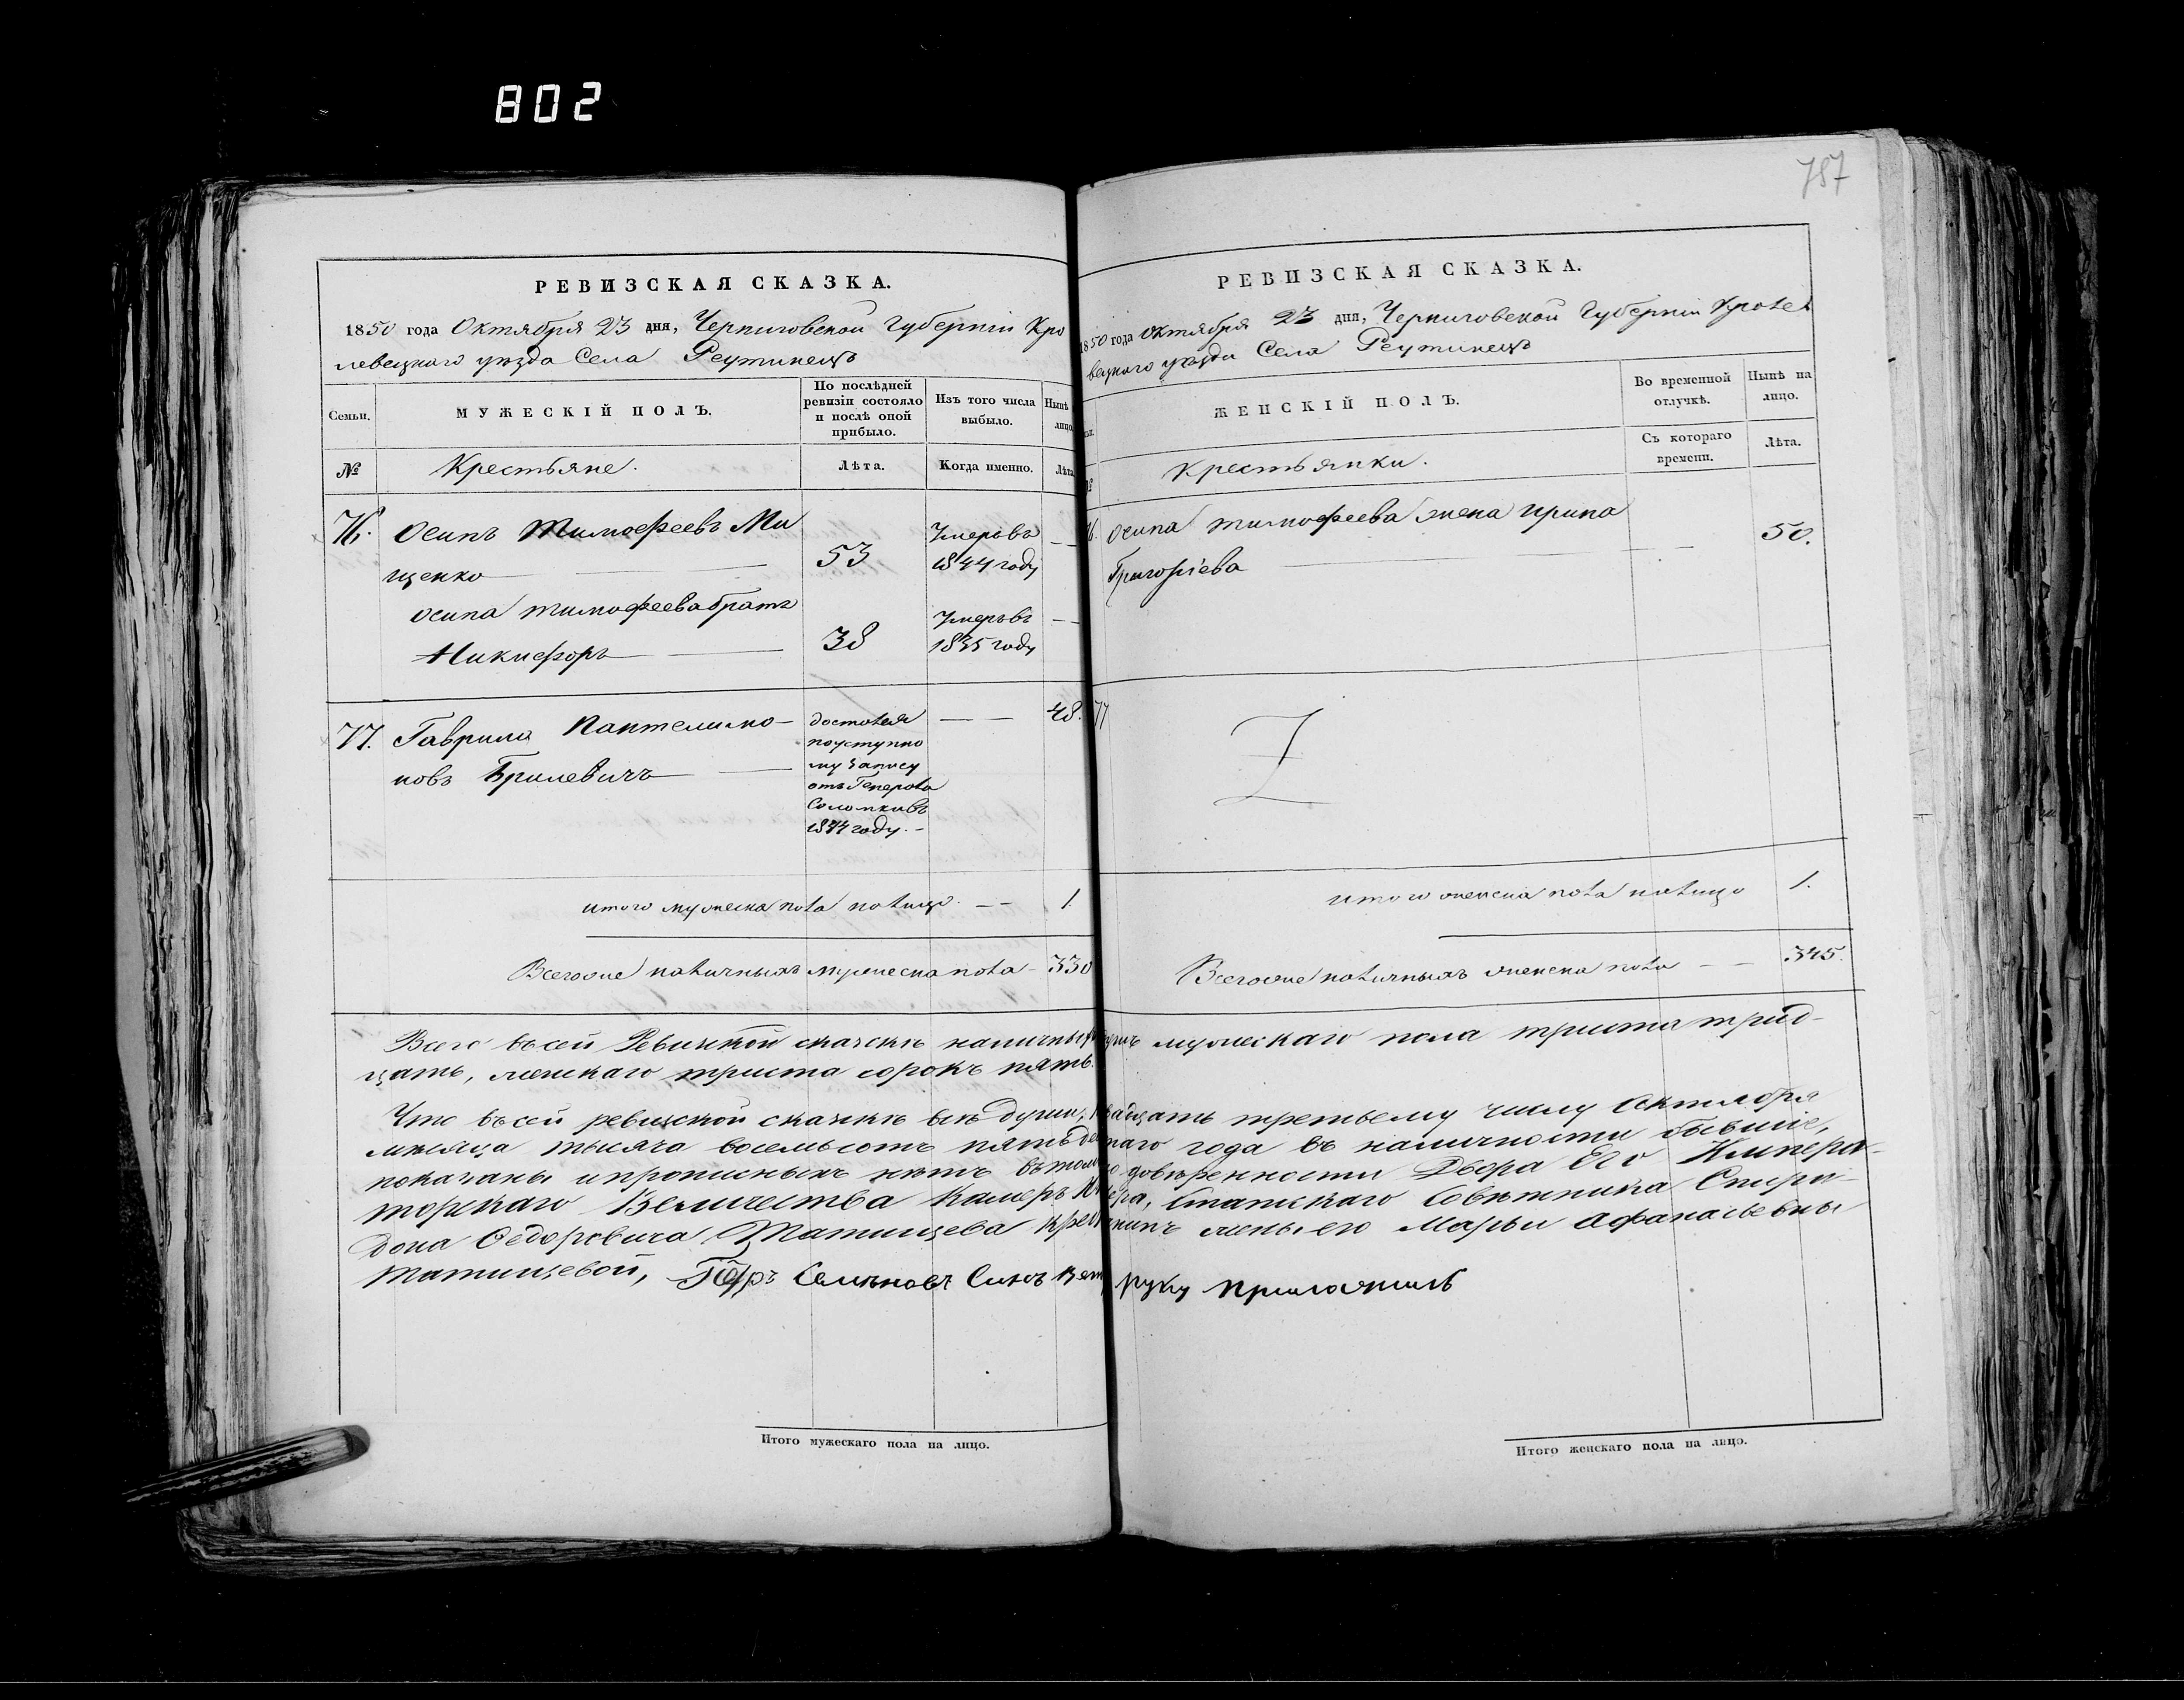 802
787
РЕВИЗСКАЯ СКАЗКА.
1850 года Октября 23 дня, Черниговской Губерніи Кро
левецкаго уѣзда Села Реутинецъ
Семьи.
МУЖЕСКІЙ ПОЛЪ.
По послѣдней
ревизіи состояло
и послѣ оной
прибыло.
Изъ того числа
выбыло.
Нынѣ
лицо
№
Крестьяне.
Лѣта.
Когда именно.
Лѣта
76. Осипъ Тимофеевъ Ми
щенко
53
Умеръ въ
1844 году
Осипа Тимофеева братъ
Никифоръ
38
Умеръ въ
1835 году
77. Гаврила Пантелимо-
новъ Брилевичъ
достался
поуступно
му запису
отъ Генерала
в
1844 году.
48.
итого мужеска пола налицо. 1
Всегоже наличныхъ мужеска пола 330
РЕВИЗСКАЯ СКАЗКА.
1850 года Октября 23 дня, Черниговской Губерніи Кролев
вецкаго уѣзда Села Реутинецъ
ЖЕНСКІЙ ПОЛЪ.
Во временной
отлучкѣ.
Нынѣ на
лицо.
Съ котораго
времени.
Лѣта.
Крестьянки.
76. Осипа Тимофеева жена Ирина
Григорiева
50.
77
итого женска пола налицо 1.
Всегоже наличныхъ женска пола 345.
Всего въ сей Ревизкой сказкѣ наличныхъ душъ мужескаго пола триста трид-
цать, женскаго триста сорокъ пять.
Что въ сей ревизской сказкѣ всѣ души, двадцать третьему числу Октября
мѣсяца тысяча восемьсотъ пятьде таго года въ наличности бывшіе,
показаны и прописныхъ нѣтъ въ томъ довѣренности Двора Его Импера-
торскаго Величества Камеръ Юнкера, Статскаго Совѣтника Спири-
дона Федоровича Татищева крес нинъ жены его Марьи Афанасьевны
Татищевой, Семѣновъ Синъ руку приложилъ
Итого мужескаго пола на лицо.
Итого женскаго пола на лицо.